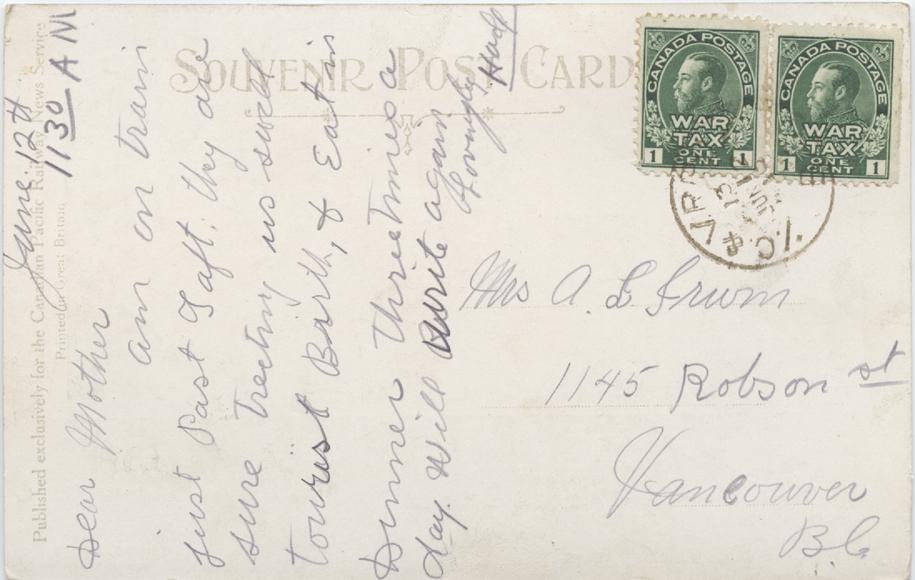 SOUVENIR POST CARD
Published exclusively for the Canadian Pacific Railway News Service
Printed in Great Britain
June 12th
11 30 AM
Dear Mother
am on train
just Past Taft. they are
sure Treeting us swell
tourist Barth, & Eat in
Dinner threetimes a
day. Will Write again
Lovingly
CANADA POSTAGE
WAR
TAX
ONE
CENT
1 1
CANADA POSTAGE
WAR
TAX
ONE
CENT
1 1
C. & V. R.P.O.
12
JUN
Mrs A. L. Irwin
1145 Robson st
Vancouver
B.C.